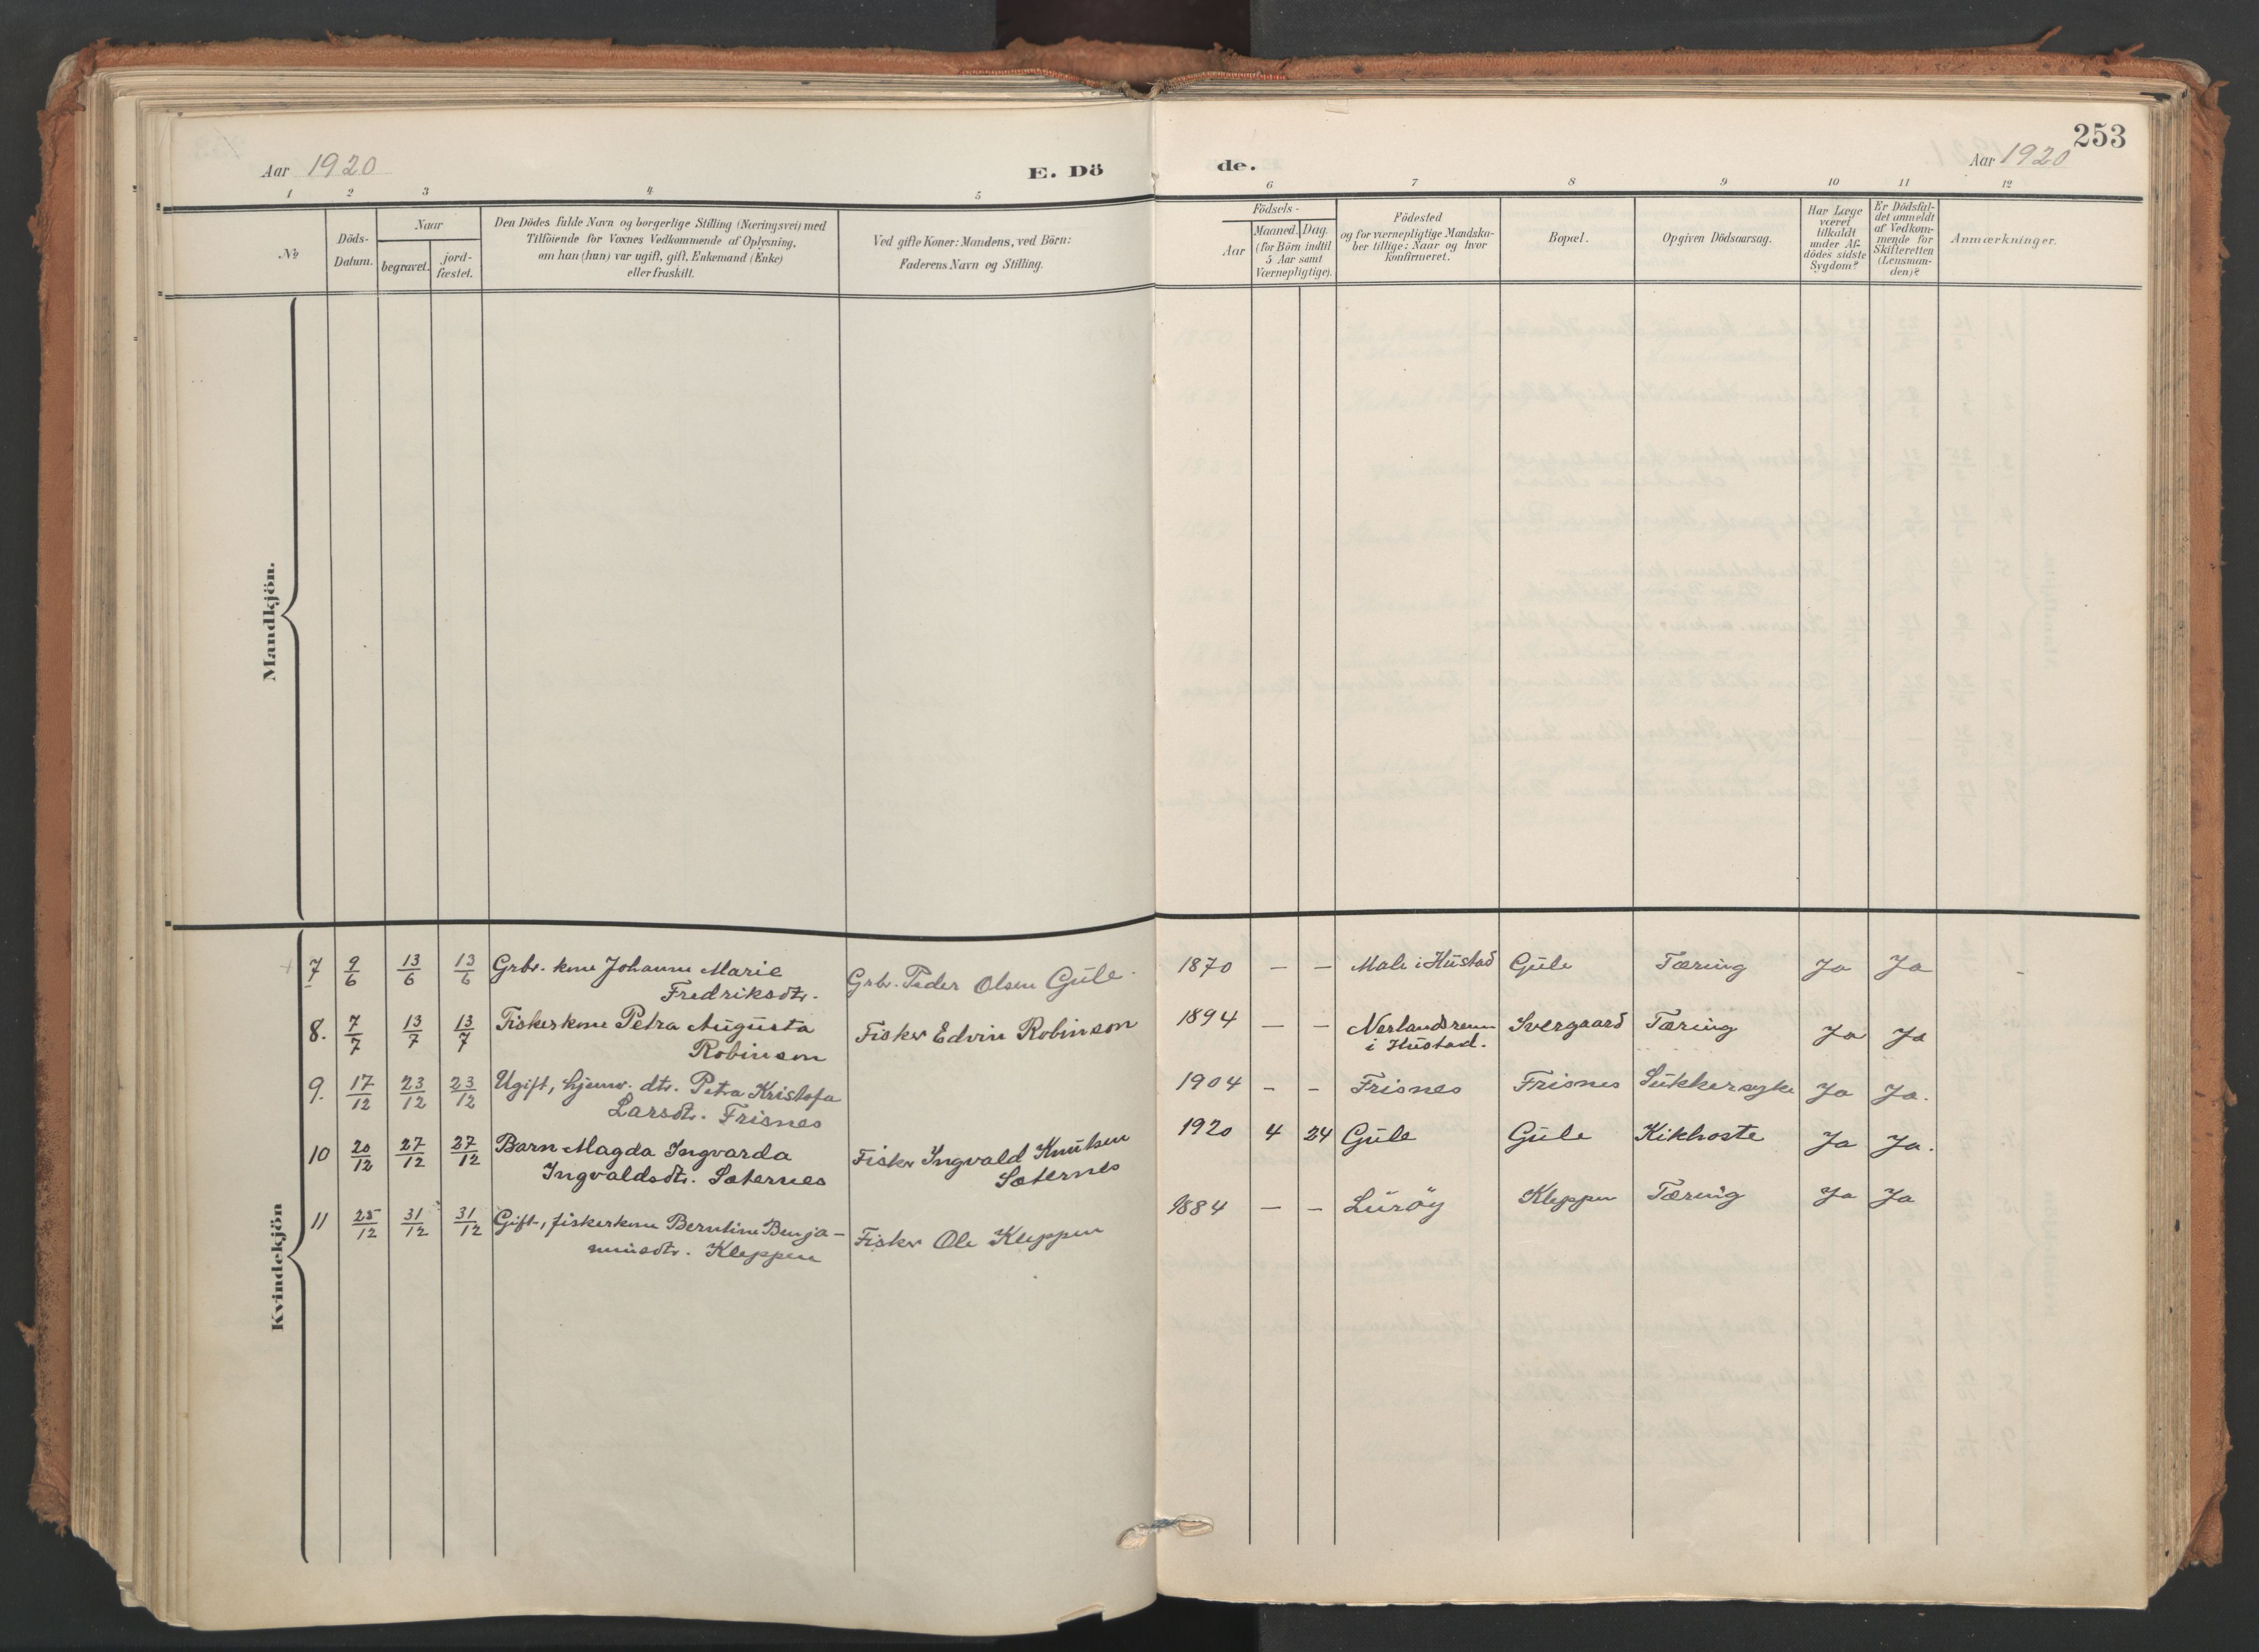 253
Aar 1920
E. Dö
de.
Aar 1920
1 2 3 4 5 6 7 8 9 10 11 12
No
Döds-
Datum.
Naar
begravet.
jord-
fæstet.
Den Dödes fulde Navn og borgerlige Stilling (Næringsvei) med
Tilföiende for Voxnes Vedkommende af Oplysning,
om han (hun) var ugift, gift, Enkemand (Enke)
eller fraskilt.
Ved gifte Koner: Mandens, ved Börn:
Faderens Navn og Stilling.
Födsels-
Aar
Maaned. Dag.
(for Börn indtil
5 Aar samt
Værnepligtige).
Födested
og for værnepligtige Mandska-
ber tillige: Naar og hvor
konfirmeret.
Bopæl.
Opgiven Dödsaarsag.
Har Læge
været
tilkaldt
under Af-
dödes sidste
Sygdom?
Er Dödsfal-
det anmeldt
af Vedkom-
mende for
Skifteretten
(Lensman-
den)?
Anmærkninger.
Mandkjön.
Kvindekjön
7 9/6 13/6 13/6 Grbr. kone Johanne Marie Grbr. Peder Olsen Gule. 1870 — — Male i Hustad Gule Tæring Ja Ja -
Fredriksdtr.
8. 7/7 13/7 13/7 Fiskerkone Petra Augusta Fisker Edvin Robinson 1894 — — Nerlandsrem Svergaard Tæring Ja Ja
Robinson i Hustad.
9. 17/12 23/12 23/12 Ugift, hjemv. dtr. Petra Kristofa 1904 - - Frisnes Frisnes Sukkersyke Ja Ja.
Larsdtr. Frisnes
10 20/12 27/12 27/12 Barn Magda Ingvarda Fisker Ingvald Knutsen 1920 4 24 Gule Gule Kikhoste Ja Ja.
Ingvaldsdtr. Sæternes Sæternes
11 25/12 31/12 31/12 Gift, fiskerkone Berntine Benja- Fisker Ole Kleppen 1884 — - Luröy Kleppen Tæring Ja Ja
minsdtr. Kleppen